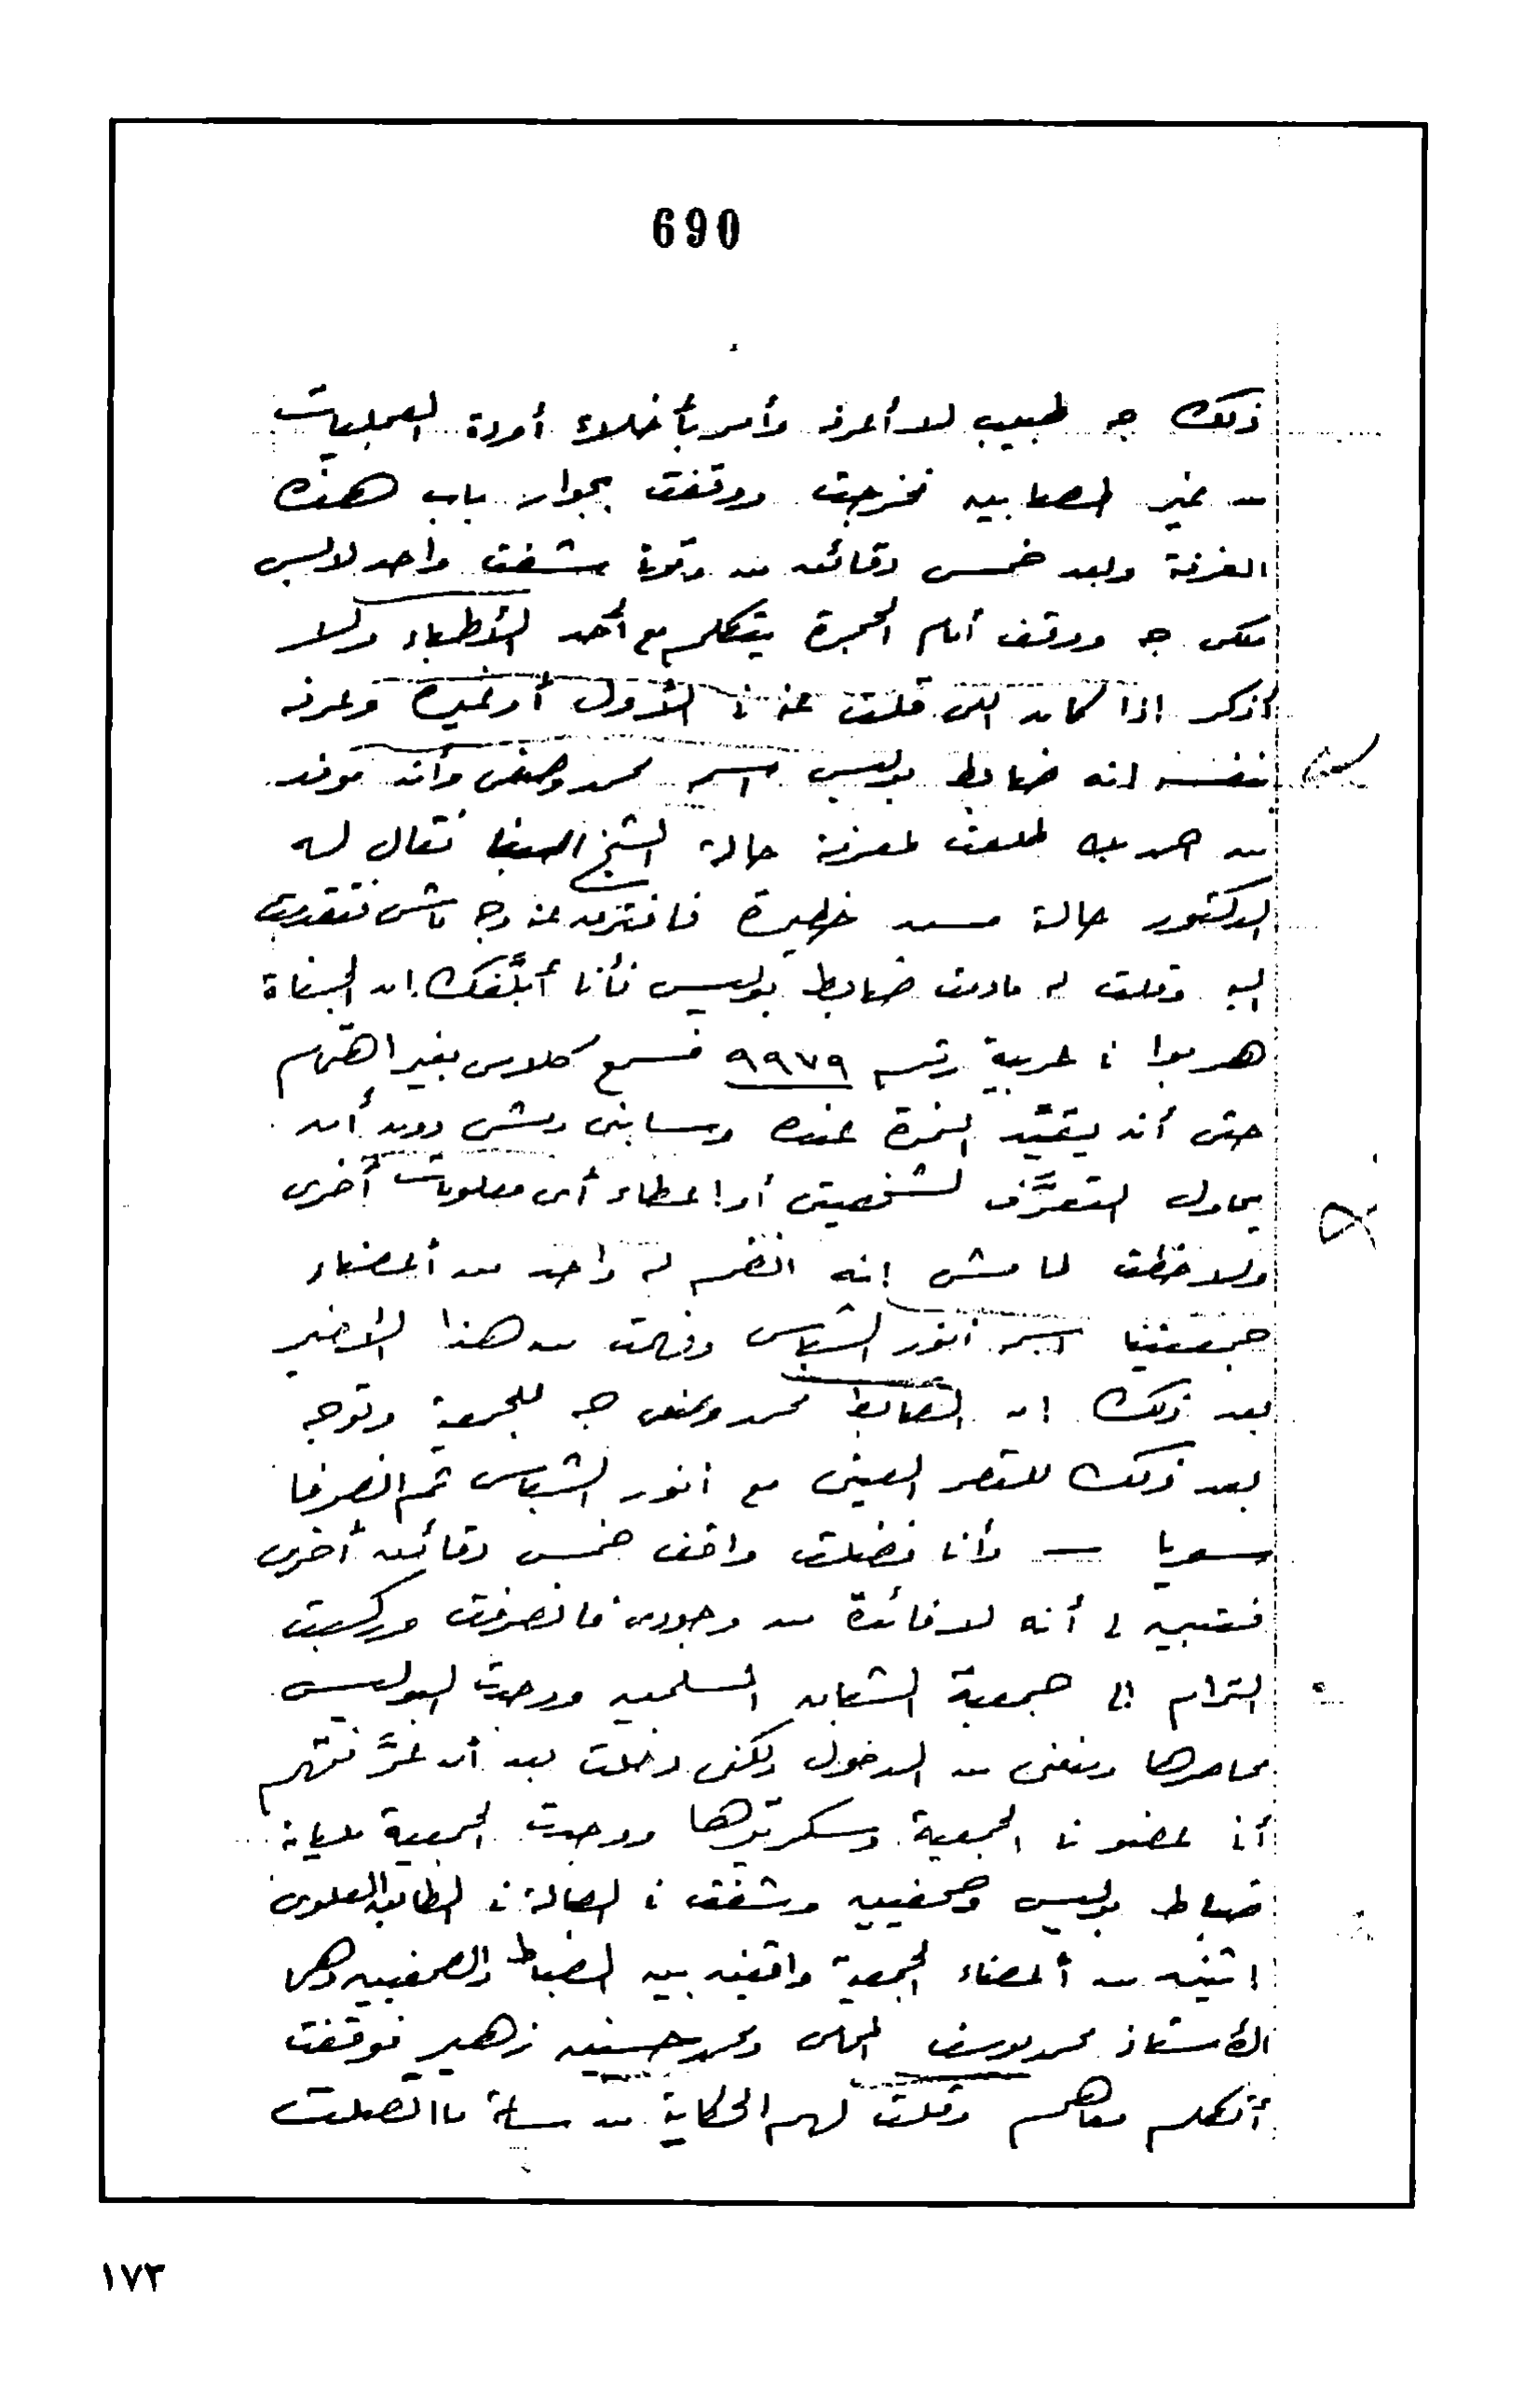 690
ذلك جه طبيب لا أعرفه وأمر بأخلاء أودة العمليات
من غير المصابين فخرجت ووقفت بجوار باب هذه
الغرفة وبعد خمس دقائق من وقوفنا شفت واحد لابس
ملكى جه ووقف أمام الحجرة يتكلم مع أحد الأطباء ولا
أذكر اذا كان اللى قلت عنه فى الأول أو غيره وعرفه
نفسه انه ضابط بوليس اسمه محمد وصفى وأنه موفد
من أحمد بك طلعت لمعرفة حالة الشيخ البنا فقال له
الدكتور حالته مسه خطيرة فافترق عنه وجه ماشى فتقدمت
اليه وقلت له مادمت ضابط بوليس فأنا أبلَّغك ان الجناة
هربوا فى عربية رقم ٩٩٧٩ فسمع كلامى بغير اهتمام
حتى أنه يقيَّد النمرة عنده وسابنى ومشى دون أن
يحاول التعرَّف لشخصيتى أو اعطاء أى معلومات أخرى
ولاحظت لما مشى انه انضم له واحد من أعضاء
جمعيتنا اسمه أنور الشباسى وفهمت من هذا الاخير
بعد ذلك ان الضابط محمد وصفى جه للجمعية وتوجه
بعد ذلك للقصر العينى مع أنور الشباسى ثم انصرفا
سويا — وأنا فضلت واقف خمس دقائق أخرى
فتبين لى أنه لا فائدة من وجودى فانصرفت وركبت
الترام الى جمعية الشبان المسلمين ووجدت البوليس
محاصرها ومنعنى من الدخول ولكنى دخلت بعد أن عرَّفتهم
أنى عضو فى الجمعية وسكرتيرها ووجدت الجمعية مليانة
ضباط بوليس وصحفيين وشفت فى الصالة فى الطابق العلوى
اثنين من أعضاء الجمعية واقفين بين الضباط والصحفيين وهم
الأستاذ محمد يوسف الليثى ومحمد حسنين زهير فوقفت
أتكلم معاهم وقلت لهم الحكاية من ساعة ما اتصلت
١٧٣